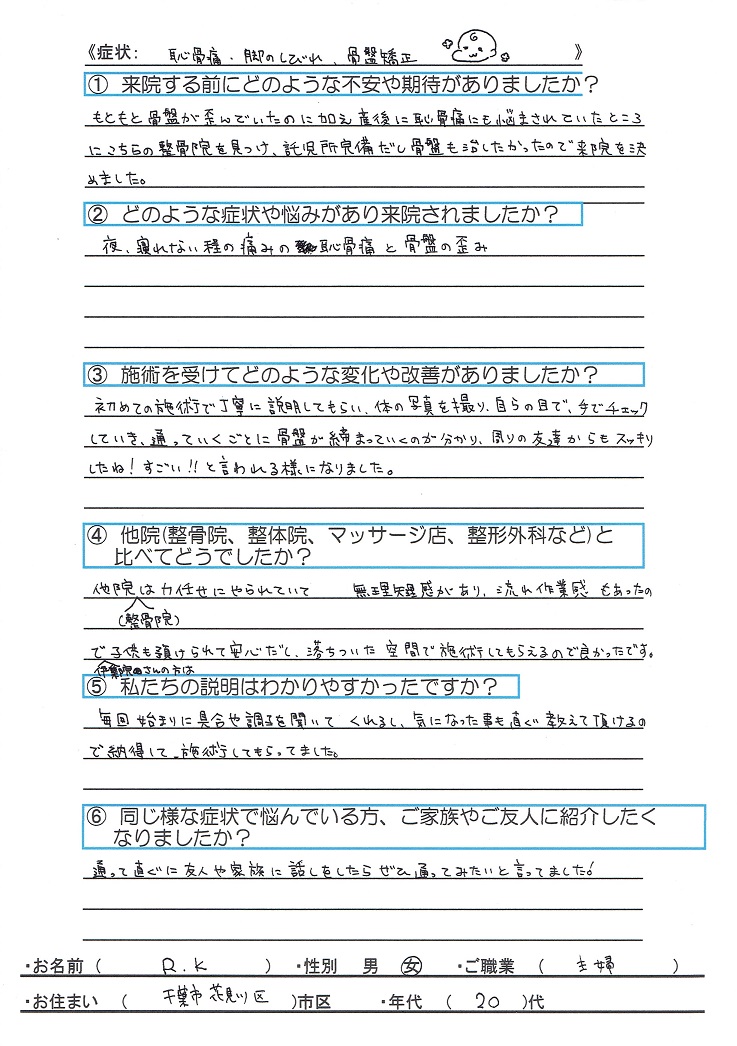 《症状: 恥骨痛・脚のしびれ、骨盤矯正 》
① 来院する前にどのような不安や期待がありましたか？
もともと骨盤が歪んでいたのに加え産後に恥骨痛にも悩まされていたところ
にこちらの整骨院を見つけ、託児所完備だし骨盤も治したかったので来院を決
めました。
② どのような症状や悩みがあり来院されましたか？
夜、寝れない程の痛みの恥骨痛と骨盤の歪み
③ 施術を受けてどのような変化や改善がありましたか？
初めての施術で丁寧に説明してもらい、体の写真を撮り、自らの目で、手でチェック
していき、通っていくごとに骨盤が締まっていくのが分かり、周りの友達からもスッキリ
したね！すごい!!と言われる様になりました。
④ 他院(整骨院、整体院、マッサージ店、整形外科など)と
比べてどうでしたか？
他院は力任せにやられていて 無理矢理感があり、流れ作業感もあったの
(整骨院)
で子供も預けられて安心だし、落ちついた空間で施術してもらえるので良かったです。
さんの方は
⑤ 私たちの説明はわかりやすかったですか？
毎回始まりに具合や調子を聞いてくれるし、気になった事も直ぐ教えて頂けるの
で納得して施術してもらってました。
⑥ 同じ様な症状で悩んでいる方、ご家族やご友人に紹介したく
なりましたか？
通って直ぐに友人や家族に話しをしたらぜひ通ってみたいと言ってました!
・お名前 ( R.K ) ・性別 男 女 ・ご職業 ( 主婦 )
・お住まい ( 千葉市花見川区 )市区 ・年代 ( 20 )代